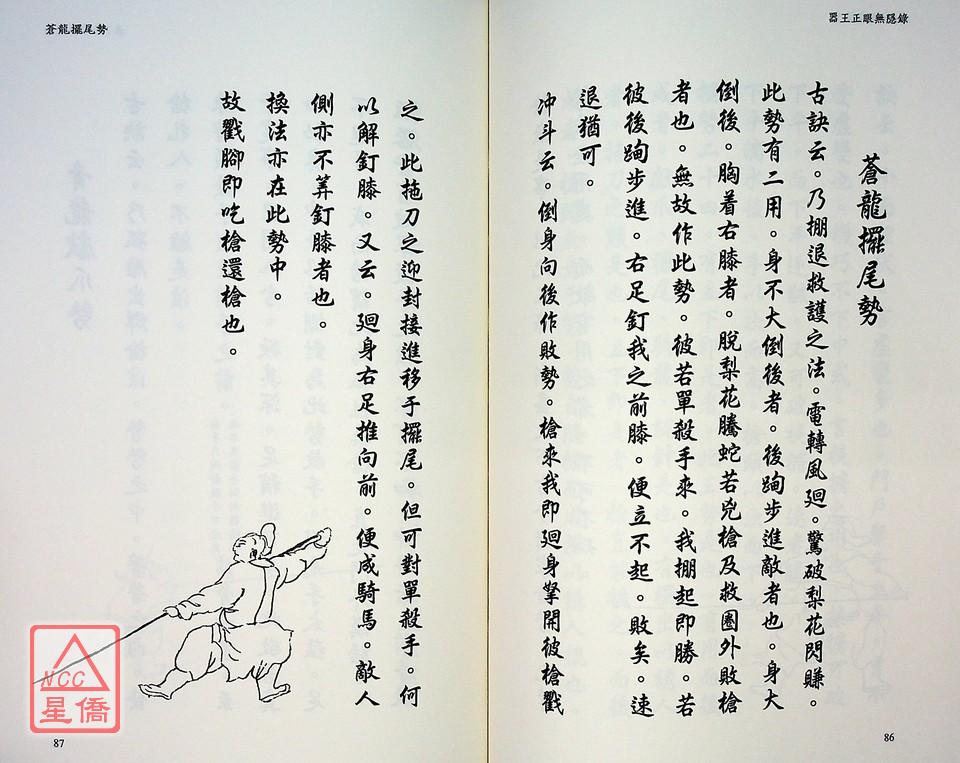 器王正眼無隱錄
蒼龍擺尾勢
古訣云。乃掤退救護之法。電轉風廻。驚破梨花閃賺。
此勢有二用。身不大倒後者。後跼步進敵者也。身大
倒後。胸着右膝者。脫梨花騰蛇若兇槍及救圈外敗槍
者也。無故作此勢。彼若單殺手來。我掤起即勝。若
彼後跼步進。右足釘我之前膝。便立不起。敗矣。速
退猶可。
冲斗云。倒身向後作敗勢。槍來我即廻身拏開彼槍戳
86
蒼龍擺尾勢
之。此拖刀之迎封接進移于擺尾。但可對單殺手。何
以解釘膝。又云。廻身右足推向前。便成騎馬。敵人
側亦不筭釘膝者也。
換法亦在此勢中。
故戳腳即吃槍還槍也。
NCC
星僑
87